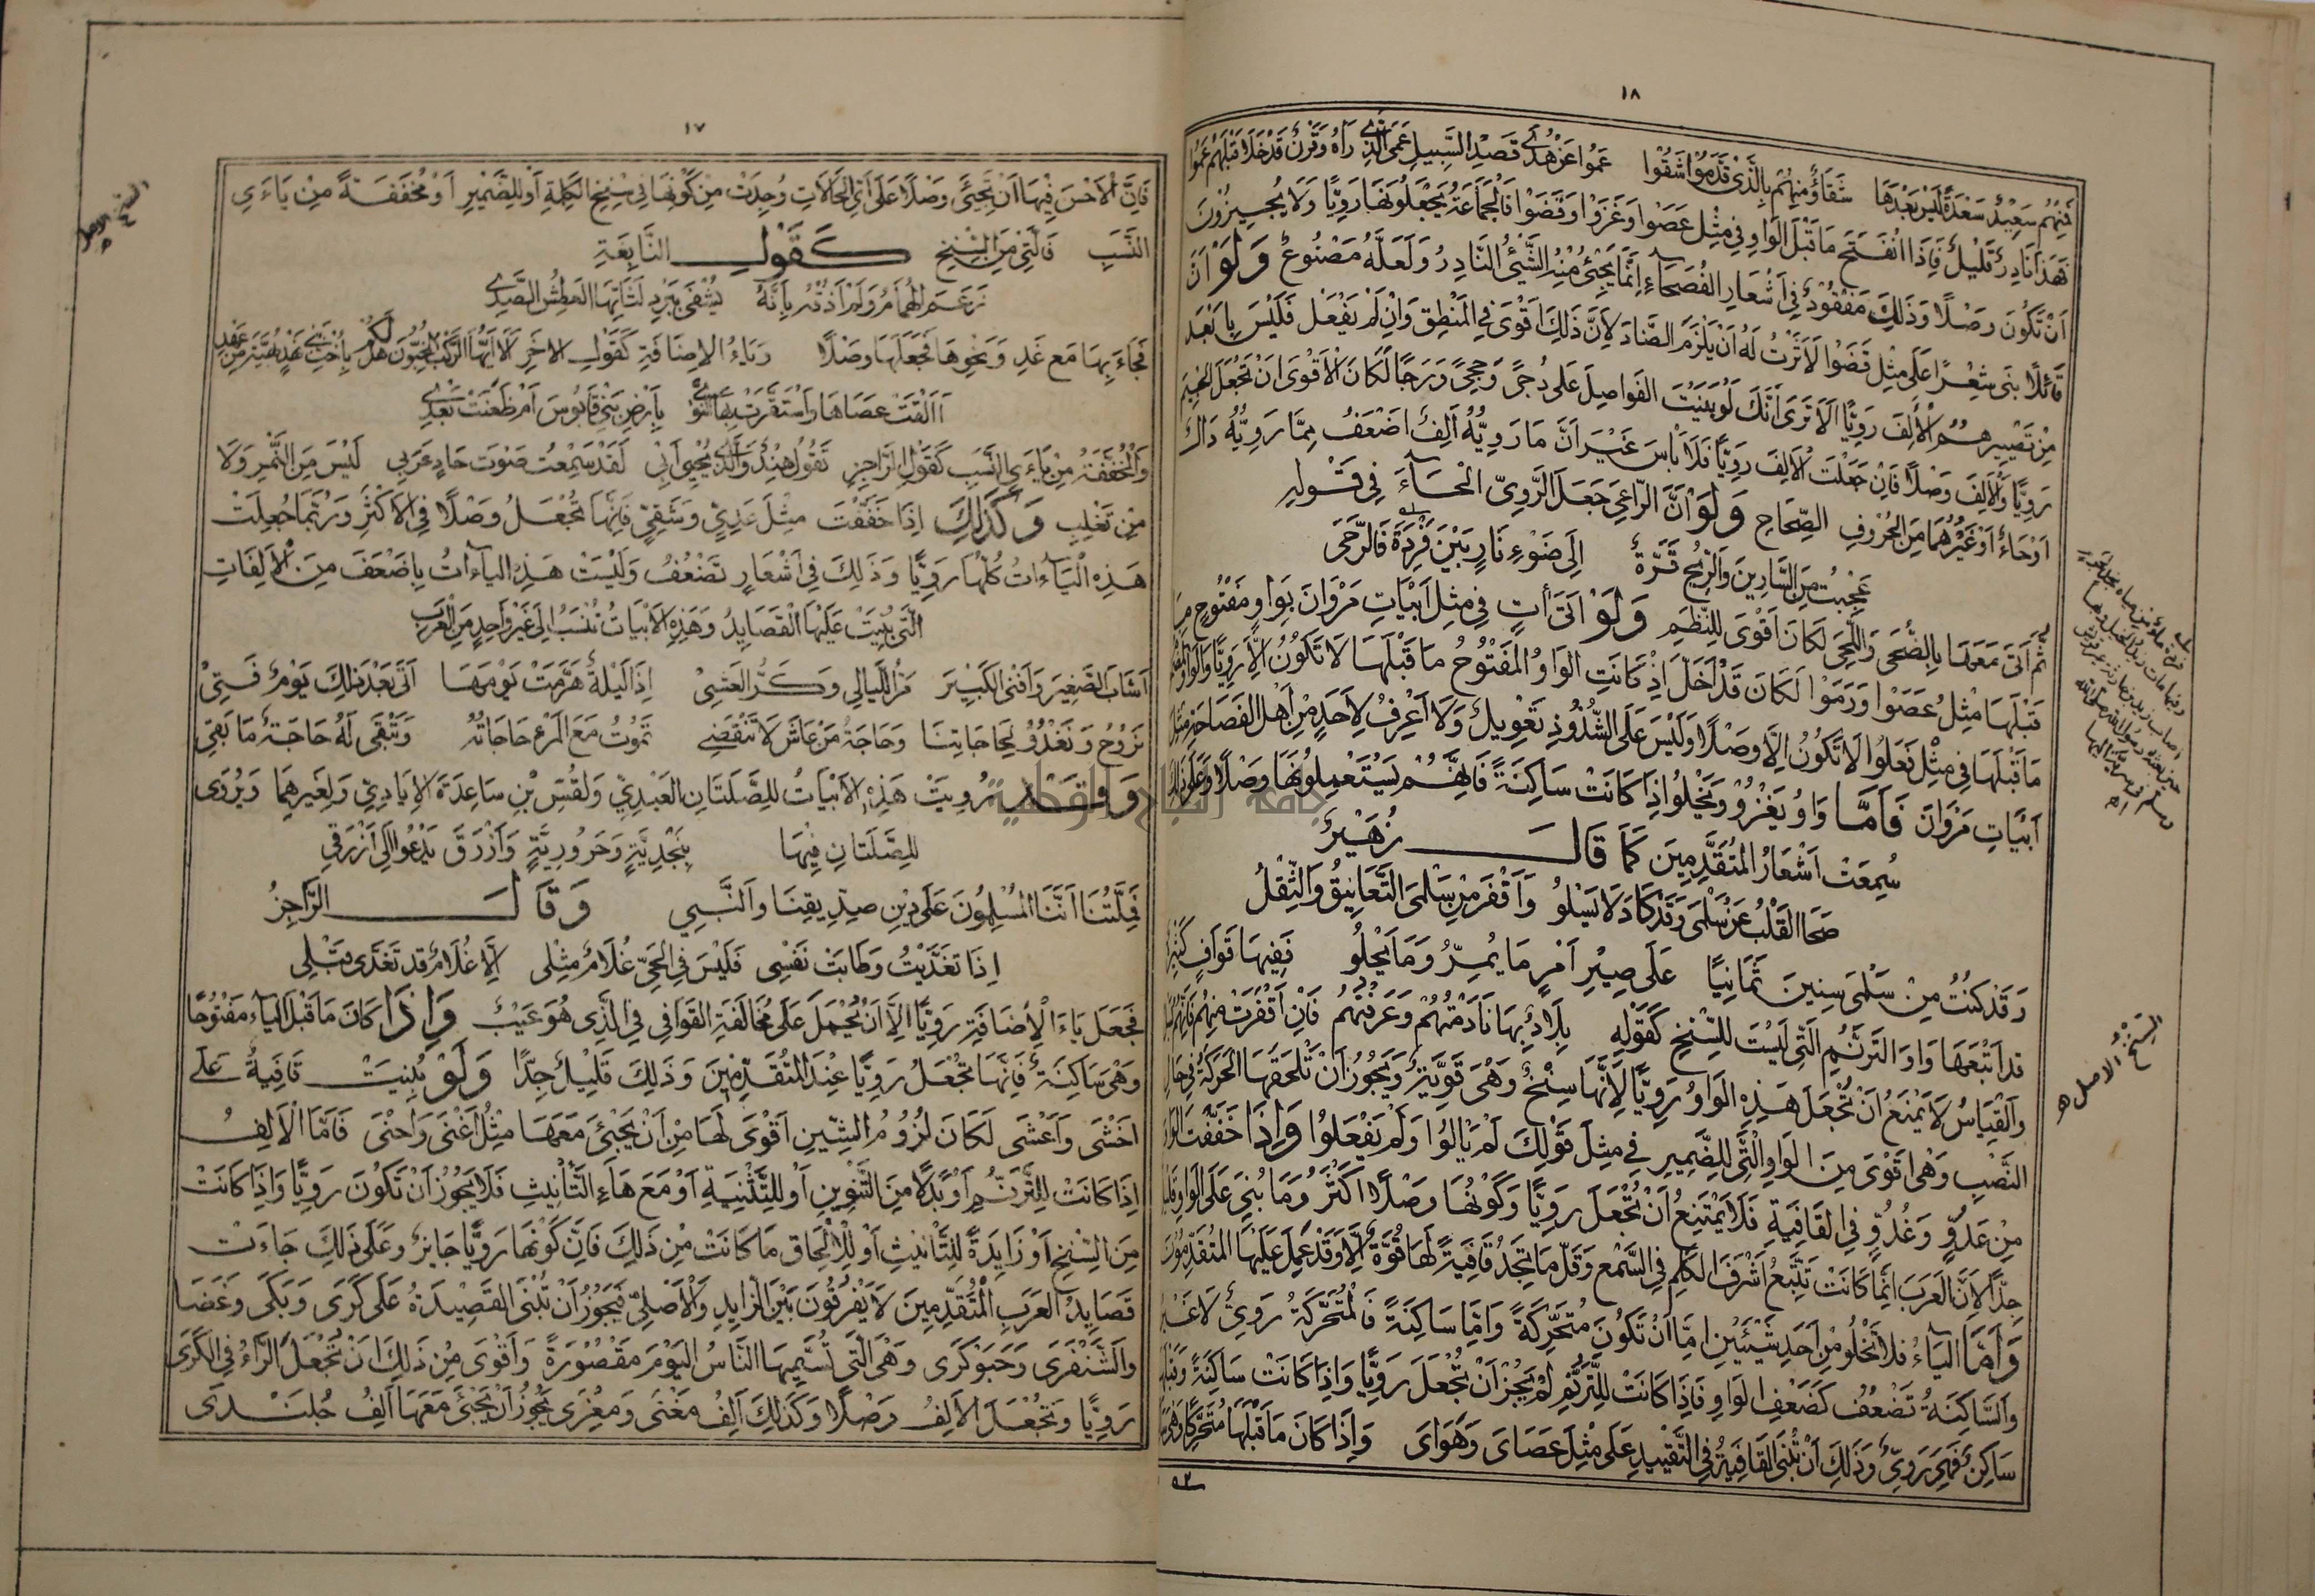 ١٨
فمنهم سعيد سعدة ليس بعدها شقاء ومنهم بالذي قدموا شقوا عموا عن هدى قصد السبيل عمى الذي رآه وقرن قد خلا قبلهم عموا
فهذا نادر قليل فإذا انفتح ما قبل الواو في مثل عصوا وغزوا وقضوا فالجماعة يجعلونها رويا ولا يجيزون
ان تكون وصلا وذلك مفقود في اشعار الفصحاء إنما يجيء منه الشيء النادر ولعله مصنوع ولو ان
قائلا بنى شعرا على مثل قضوا لآثرت له أن يلزم الضاد لأن ذلك اقوى في المنطق وان لم يفعل فليس بابعد
من تصييرهم الألف رويا ألا ترى انك لو بنيت الفواصل على دجى وحجى ورجا لكان الأقوى ان تجعل الجيم
رويا والالف وصلا فان جعلت الالف رويا فلا بأس غير ان ما رويه ألف اضعف مما رويه دال
او حاء أو غيرهما من الحروف الصحاح ولو أن الراعي جعل الروي الحاء في قوله
عجبت من السارين والريح قرة إلى ضوء نار بين فردة فالرحى
ثم أتى معها بالضحى واللحى لكان اقوى للنظم ولو اتى آت في مثل أبيات مروان بواو مفتوح ما
قبلها مثل عصوا ورموا لكان قد أخل اذ كانت الواو المفتوح ما قبلها لا تكون إلا رويا والواو المضموم
ما قبلها في مثل فعلوا لا تكون إلا وصلا وليس على الشذوذ تعويل ولا أعرف لأحد من أهل الفصاحة مثل
أبيات مروان فأما واو يغزو ويخلو إذا كانت ساكنة فإنهم يستعملونها وصلا وعلى ذلك
سمعت اشعار المتقدمين كما قال زهير
صحا القلب عن سلمى وقد كاد لا يسلو وأقفر من سلمى التعانيق والثقل
وقد كنت من سلمى سنين ثمانيا على صير أمر ما يمر وما يحلو ففيها قواف كثيرة
قد اتبعها واو الترنم التي ليست للسنخ كقوله بلاد بها نادمتهم وعرفتهم فإن أقفرت منهم فإنهم بسل
والقياس لا يمنع ان تجعل هذه الواو رويا لأنها سنخ وهي قوية ويجوز أن تلحقها الحركة في حال
النصب وهي اقوى من الواو التي للضمير في مثل قولك لم يالوا ولم يفعلوا واذا خففت الواو
من عدو وغدو في القافية فلا يمتنع أن تجعل رويا وكونها وصلا اكثر وما بني على الواو قليل
جدا لأن العرب إنما كانت تتبع اشرف الكلم في السمع وقل ما تجد قافية لها قوة إلا وقد عمل عليها المتقدمون
وأما الياء فلا تخلو من أحد شيئين إما أن تكون متحركة وإما ساكنة فالمتحركة روي لا غير
والساكنة تضعف كضعف الواو فإذا كانت للترنم لم يجز أن تجعل رويا وإذا كانت ساكنة وقبلها
ساكن فهي روي وذلك أن تبنى القافية في التقييد على مثل عصاي وهواي وإذا كان ما قبلها متحركا وهي
السنخ الاصل
١٧
فان الأحسن فيها ان تجيء وصلا على اي الحالات وجدت من كونها في سنخ الكلمة أو للضمير او مخففة من ياءي
النسب فالتي من السنخ كقول النابغة
زعم الهمام ولم أذقه بأنه يشفى ببرد لثاتها العطش الصدي
فجاء بها مع غد ونحوها فجعلها وصلا وياء الإضافة كقول الآخر ألا أيها الركب المخبون هل لكم
أألقت عصاها واستقرت بها النوى بأرض بني قابوس أم ظعنت بعدي
والمخففة من ياءي النسب كقول الراجز تقول هند والذي يحيي أبي لقد سمعت صوت حاد عربي ليس من النمر ولا
من تغلب وكذلك إذا خففت مثل عدي وشقي فإنها تجعل وصلا في الأكثر وربما جعلت
هذه الياءات كلها رويا وذلك في اشعار تضعف وليست هذه الياءات بأضعف من الألفات
التي بنيت عليها القصايد وهذه الأبيات تنسب إلى غير واحد من العرب
أشاب الصغير وأفنى الكبير مر الليالي وكر العشي إذا ليلة هرمت يومها أتى بعد ذلك يوم فتي
نروح ونغدو لحاجاتنا وحاجة من عاش لا تنقضي تموت مع المرء حاجاته وتبقى له حاجة ما بقي
وقد رويت هذه الأبيات للصلتان العبدي ولقس بن ساعدة الإيادي ولغيرهما ويروى
للصلتان فيها بنجدية وحرورية وأزرق يدعو إلى أزرقي
فملتنا أننا المسلمون على دين صديقنا والنبي وقال الراجز
إذا تغديت وطابت نفسي فليس في الحي غلام مثلي إلا غلام قد تغدى قبلي
فجعل ياء الإضافة رويا إلا أن يحمل على مخالفة القوافي في الذي هو عيب وإذا كان ما قبل الياء مفتوحا
وهي ساكنة فإنها تجعل رويا عند المتقدمين وذلك قليل جدا ولو بنيت قافية على
اخشى وأعشى لكان لزوم الشين اقوى لها من أن يجيء معها مثل أغنى واحنى فأما الألف
إذا كانت للترنم أو بدلا من التنوين أو للتثنية أو مع هاء التأنيث فلا يجوز أن تكون رويا وإذا كانت
من السنخ أو زايدة للتأنيث أو للإلحاق ما كانت من ذلك فإن كونها رويا جايز وعلى ذلك جاءت
قصايد العرب المتقدمين لا يفرقون بين الزايد والأصلي فيجوز أن تبنى القصيدة على كرى وبكى وغضا
والشنفرى وحبوكرى وهي التي تسميها الناس اليوم مقصورة وأقوى من ذلك ان تجعل الراء في الكرى
رويا وتجعل الألف وصلا وكذلك ألف مغنى ومغزى يجوز أن يجيء معها ألف جلندى